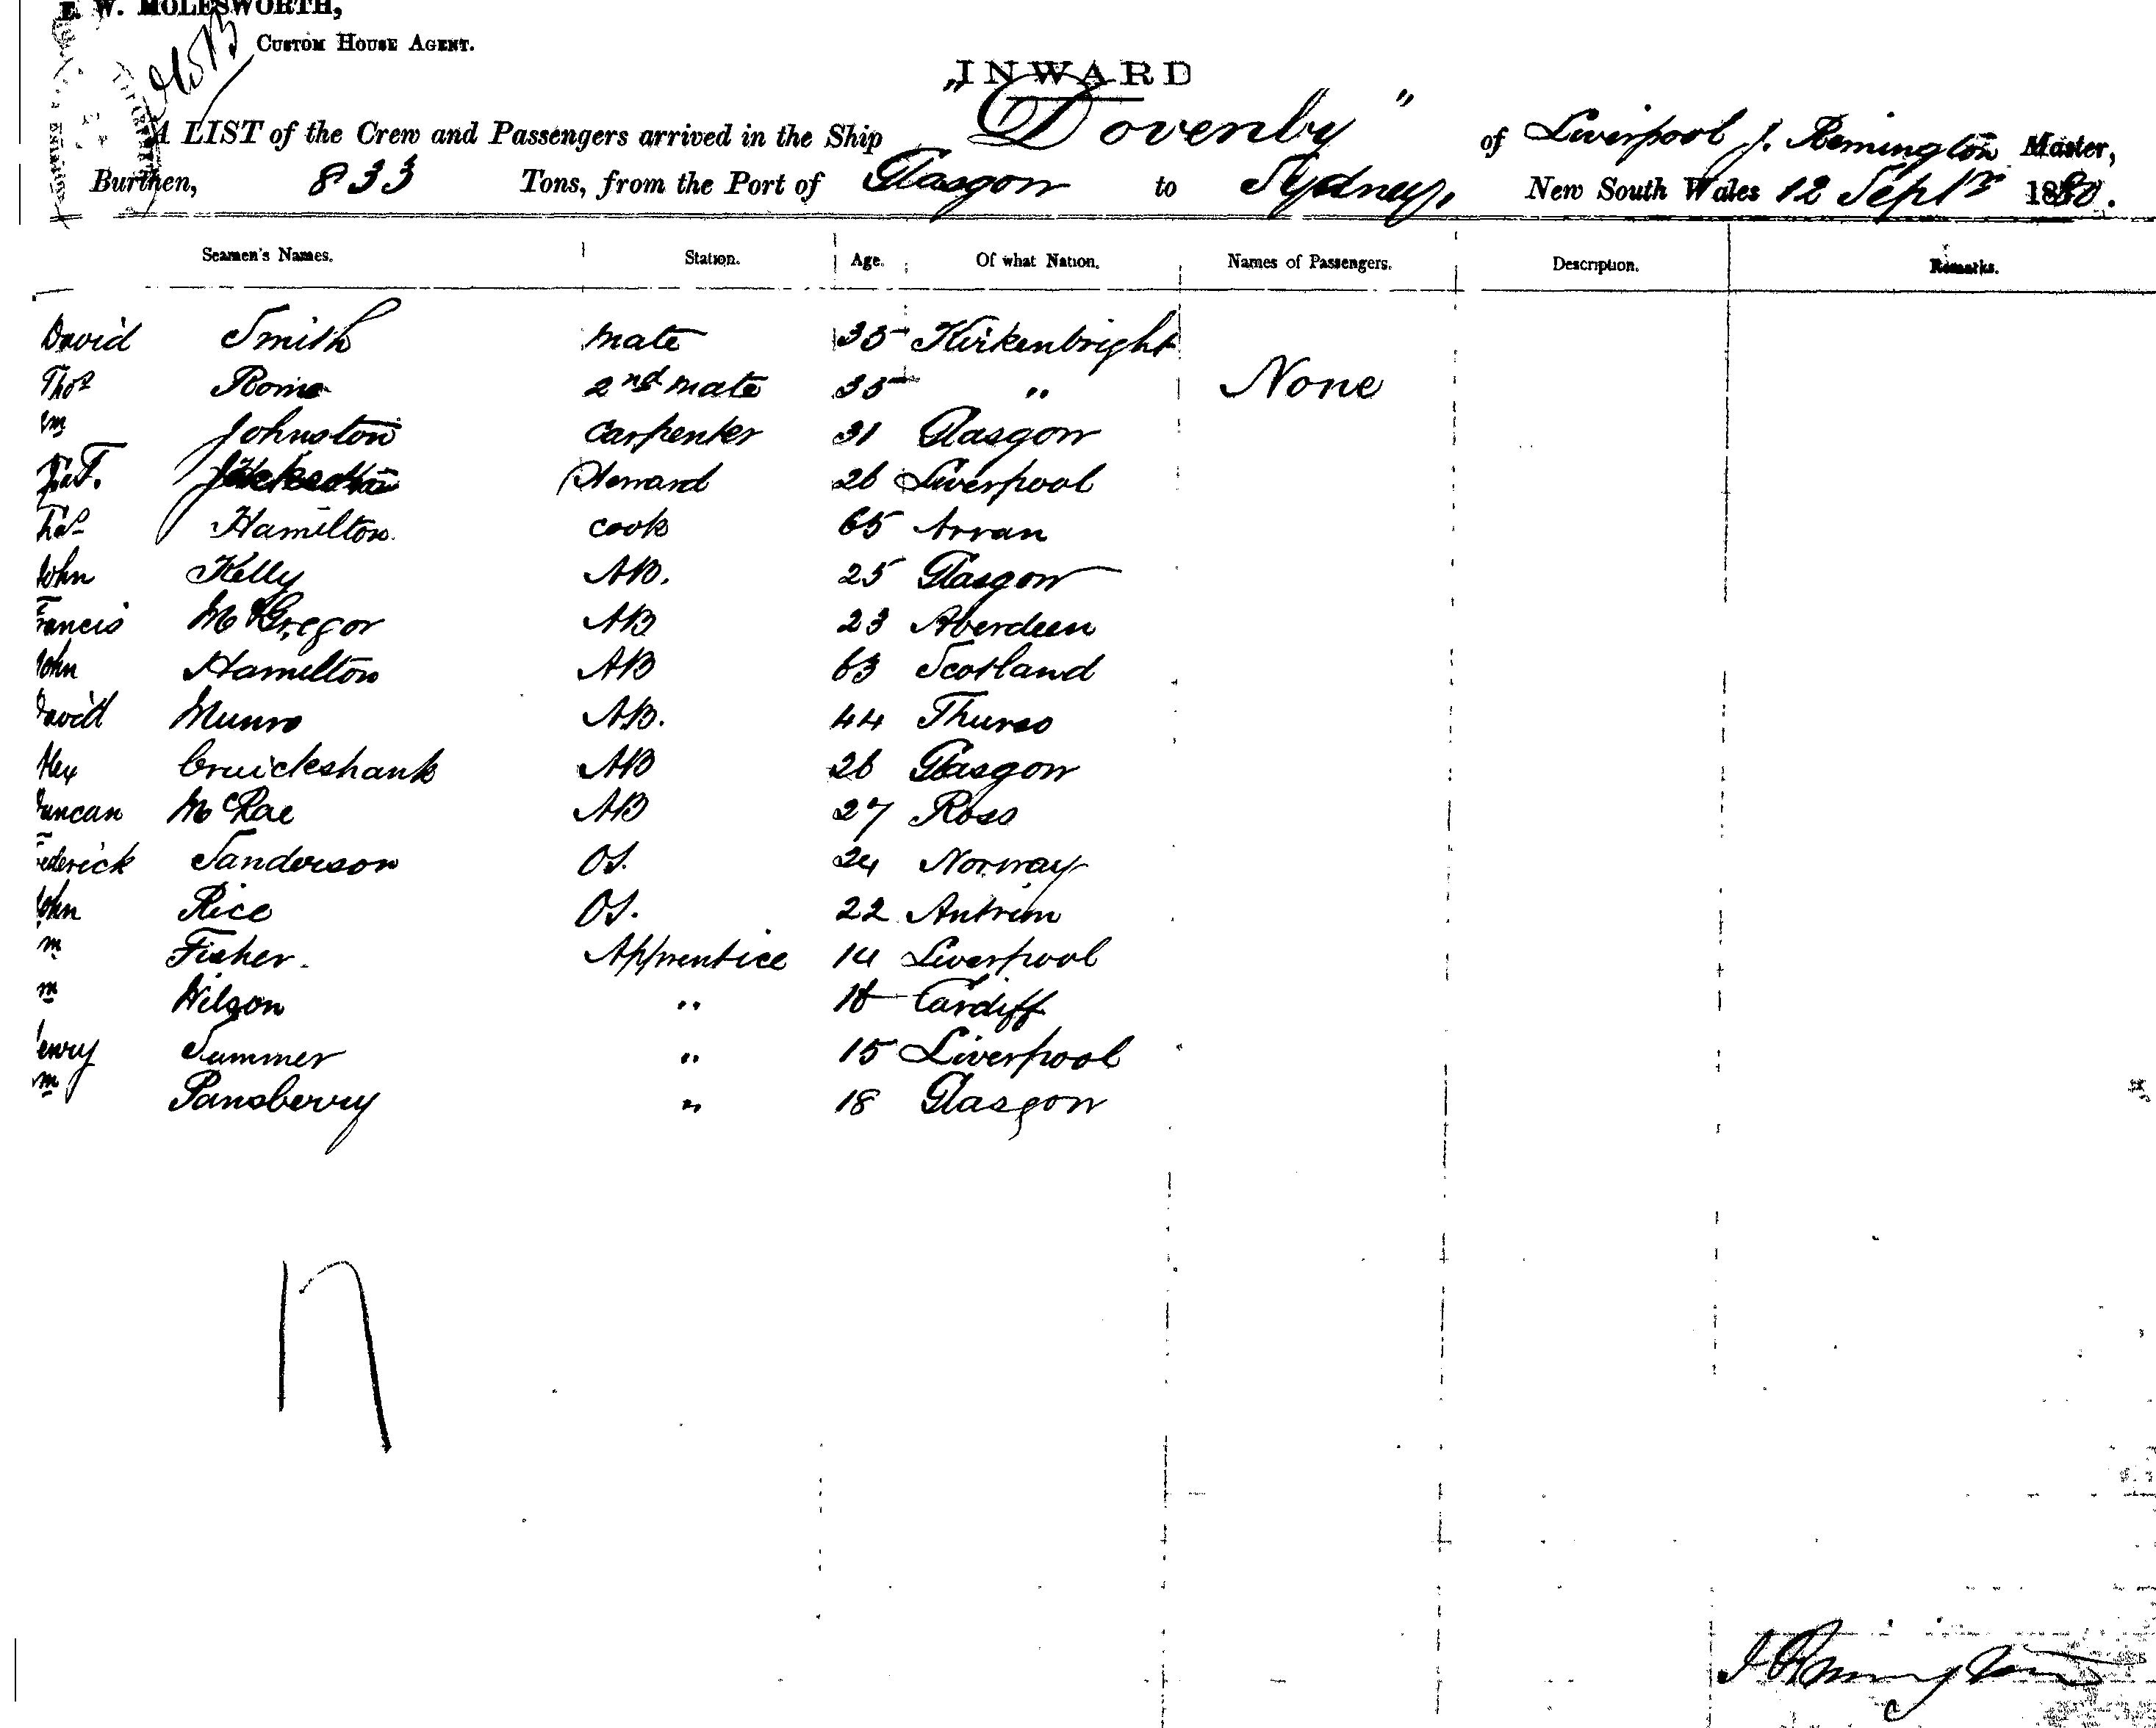 E. W. MOLESWORTH,
CUSTOM HOUSE AGENT.
INWARD
A LIST of the Crew and Passengers arrived in the Ship "Dovenby" of Liverpool J. Remington Master,
Burthen, 833 Tons, from the Port of Glasgow to Sydney, New South Wales 12 Septr 1880.
Seamen's Names. Station. Age. Of what Nation. Names of Passengers. Description. Remarks.
David Smith mate 35 Kirkenbright
Thos Rome 2nd mate 35 " None
Wm Johnston Carpenter 31 Glasgow
Steward 26 Liverpool
Hamilton cook 65 Arran
John Kelly AB. 25 Glasgow
Francis McGregor AB 23 Aberdeen
John Hamilton AB 63 Scotland
David Munro AB. 44 Thurso
Alex Cruickshank AB 26 Glasgow
Duncan McRae AB 27 Ross
Frederick Sanderson OS. 24 Norway
John Rice OS. 22 Antrim
Wm Fisher. Apprentice 14 Liverpool
Wm Wilson " Cardiff
Henry Summer " 15 Liverpool
Wm Pansberry " 18 Glasgow
17
J Remington